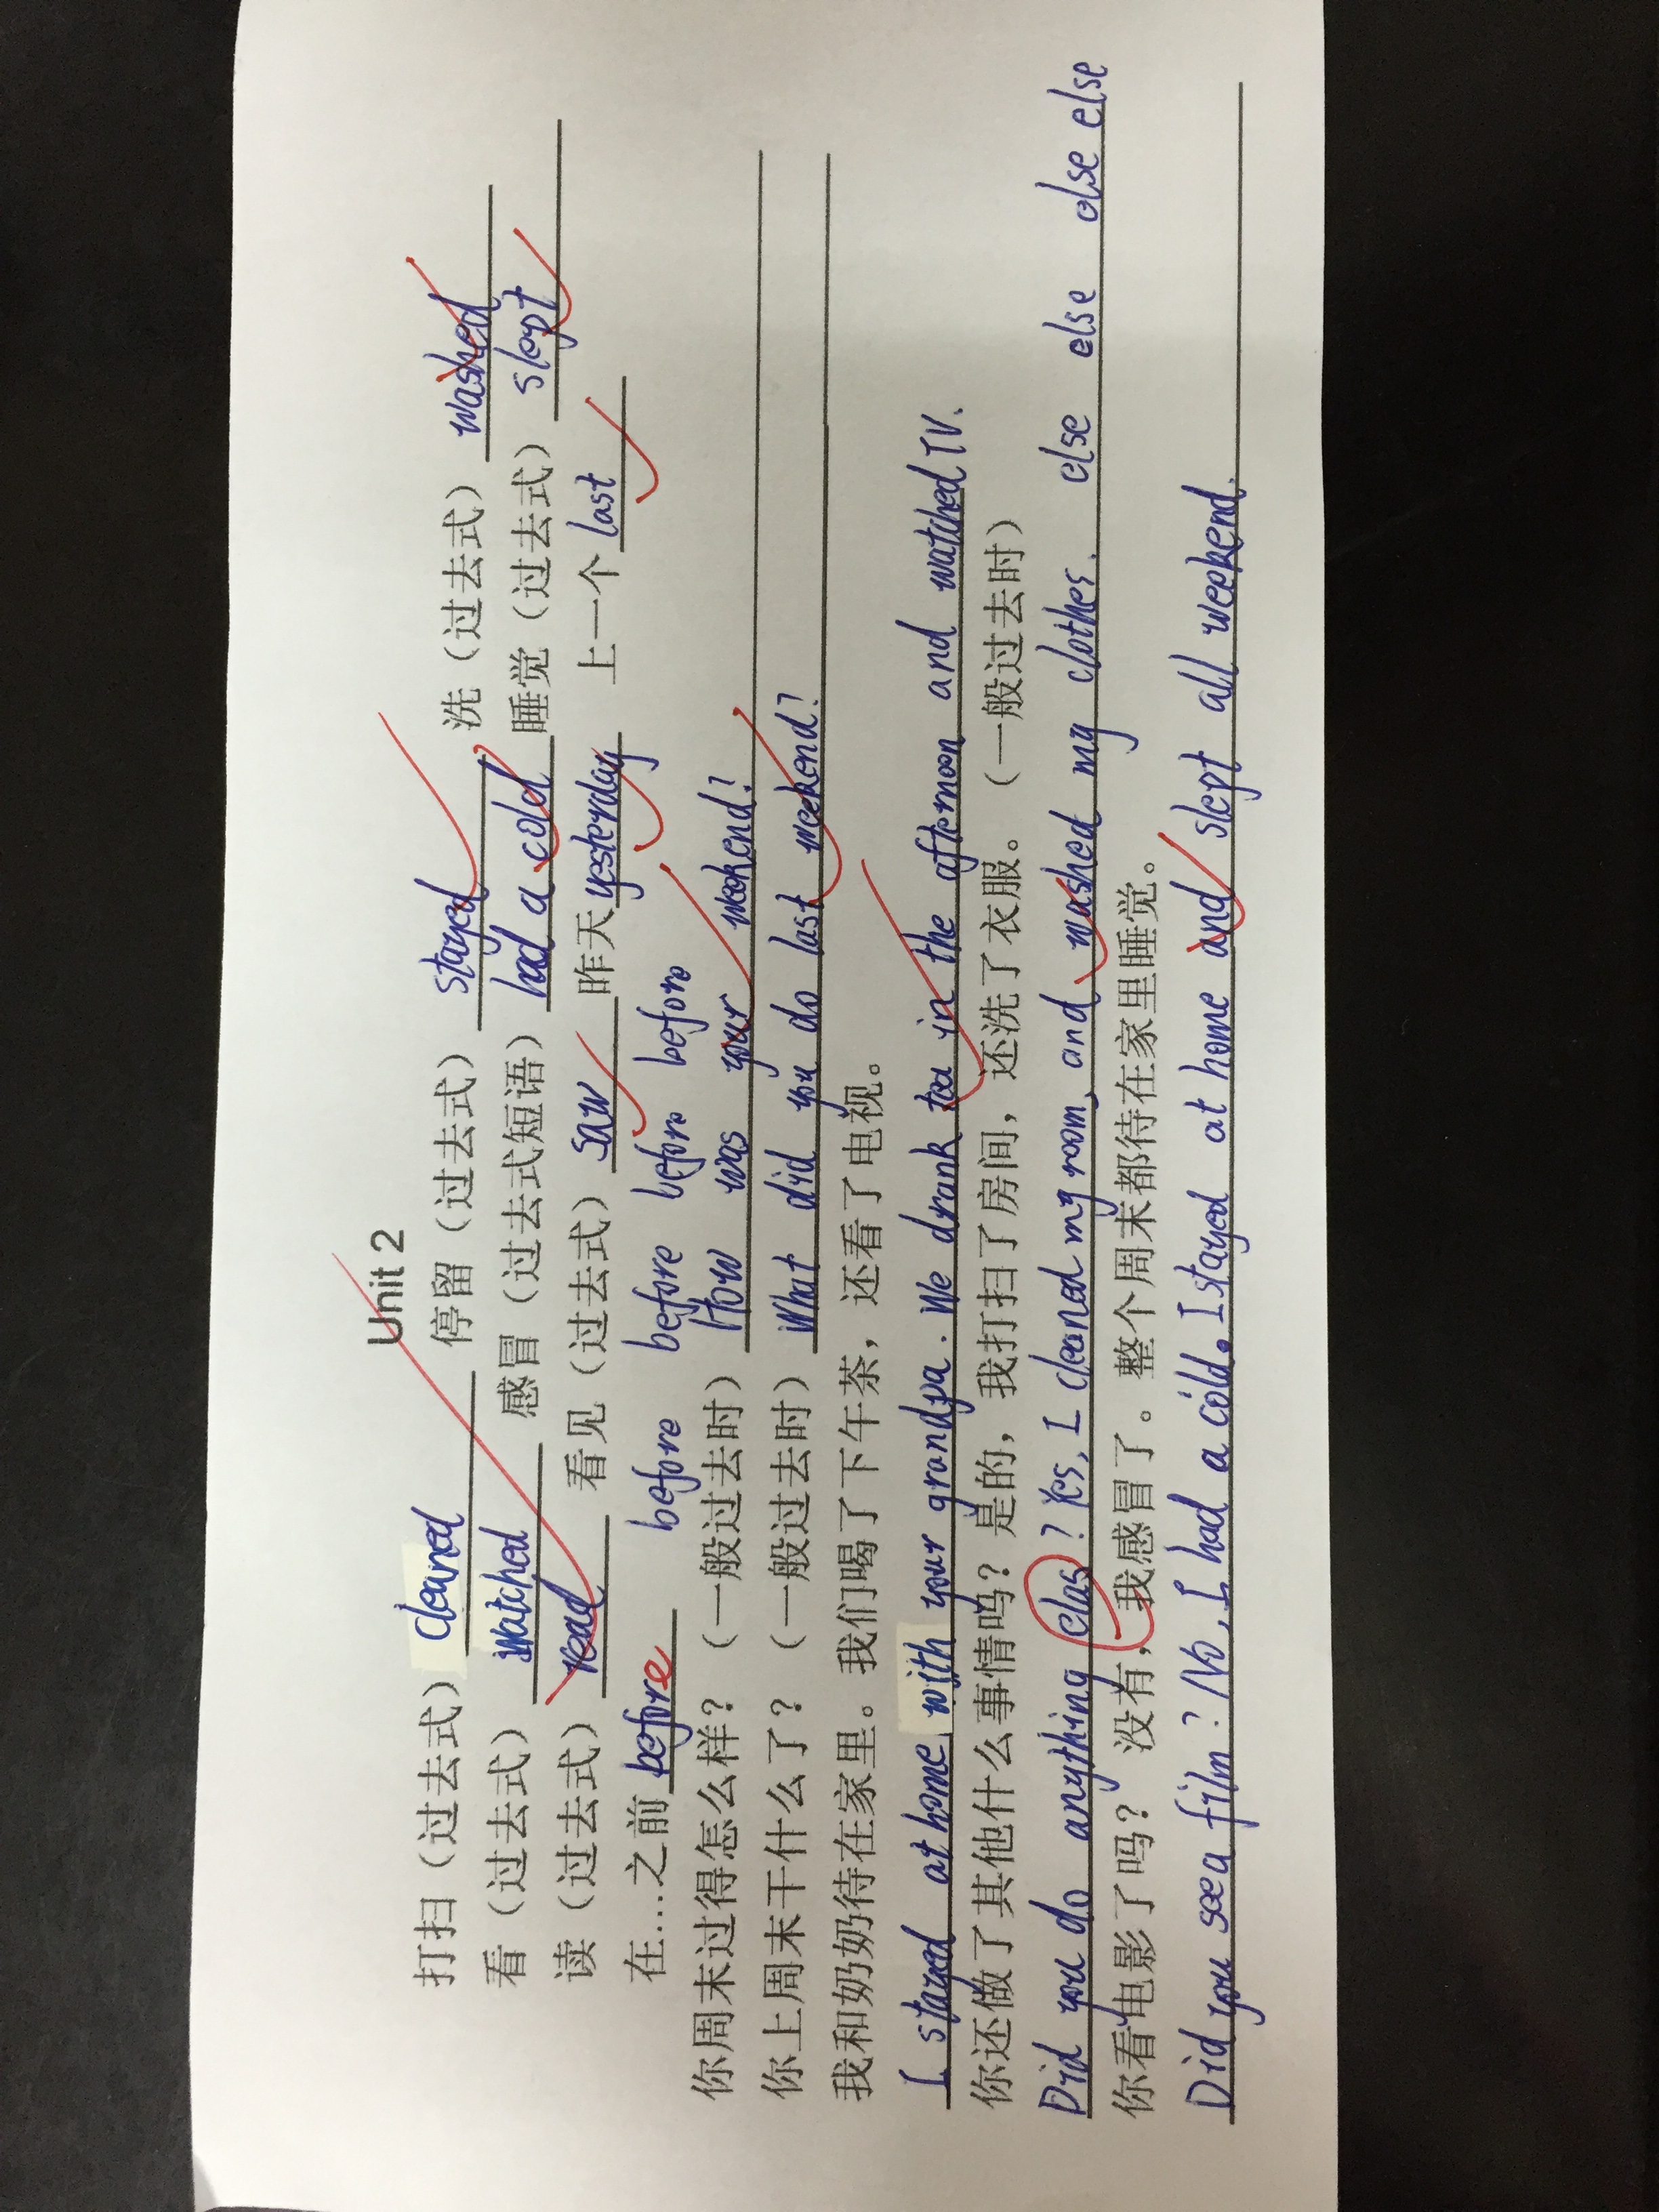 Unit 2
打扫（过去式） cleaned 停留（过去式） stayed 洗（过去式） washed
看（过去式） watched 感冒（过去式短语） had a cold 睡觉（过去式） slept
读（过去式） read 看见（过去式） saw 昨天 yesterday 上一个 last
在…之前 before before before before before
你周末过得怎么样？（一般过去时） How was your weekend?
你上周末干什么了？（一般过去时） What did you do last weekend?
我和奶奶待在家里。我们喝了下午茶，还看了电视。
I stayed at home with your grandpa. We drank tea in the afternoon and watched TV.
你还做了其他什么事情吗？是的，我打扫了房间，还洗了衣服。（一般过去时）
Did you do anything elas? Yes, I cleaned my room, and washed my clothes. else else olse else
你看电影了吗？ 没有，我感冒了。整个周末都待在家里睡觉。
Did you see a film? No, I had a cold. I stayed at home and slept all weekend.